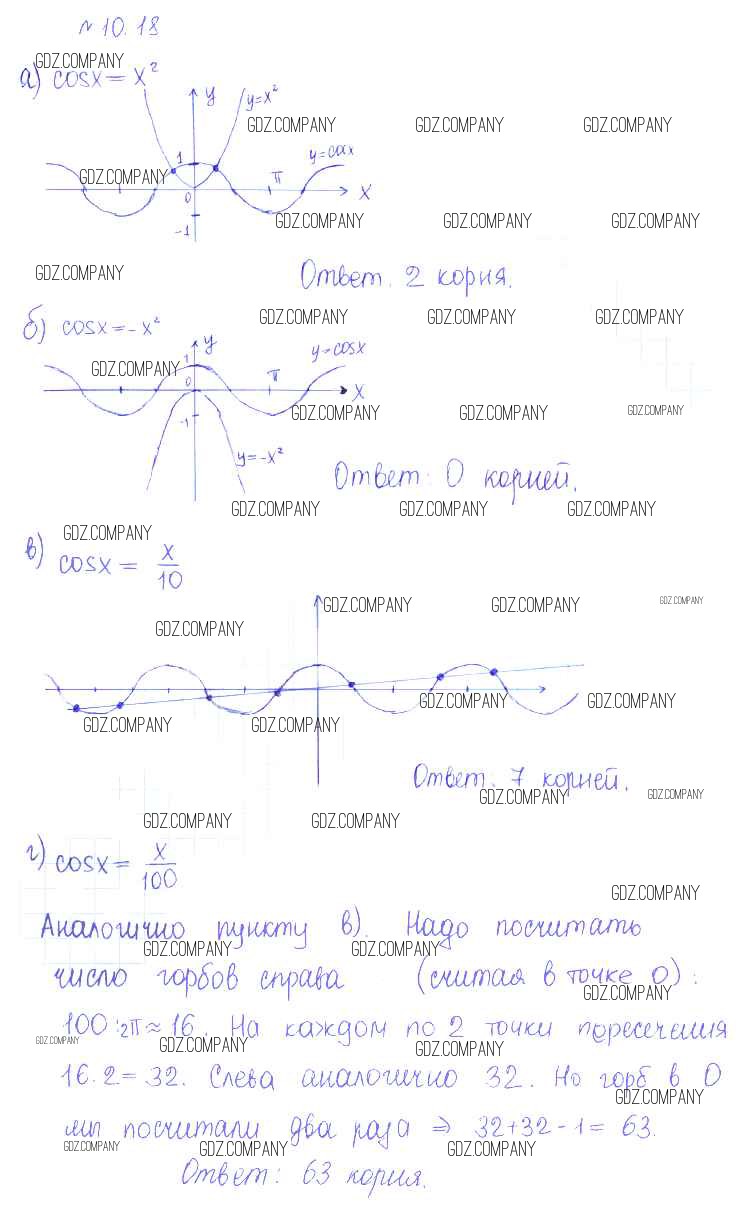 № 10.18
GDZ.COMPANY
а) cosx = x²
y y=x²
GDZ.COMPANY GDZ.COMPANY GDZ.COMPANY
1 y=cosx
GDZ.COMPANY π
0 x
-1 GDZ.COMPANY GDZ.COMPANY GDZ.COMPANY
GDZ.COMPANY Ответ. 2 корня.
б) cosx = -x² GDZ.COMPANY GDZ.COMPANY GDZ.COMPANY
y y=cosx
1
GDZ.COMPANY π
0 x
GDZ.COMPANY GDZ.COMPANY GDZ.COMPANY
-1
y=-x²
Ответ: 0 корней.
GDZ.COMPANY GDZ.COMPANY GDZ.COMPANY
GDZ.COMPANY
в) cosx = x/10
GDZ.COMPANY GDZ.COMPANY GDZ.COMPANY
GDZ.COMPANY
GDZ.COMPANY GDZ.COMPANY
GDZ.COMPANY GDZ.COMPANY
Ответ: 7 корней.
GDZ.COMPANY GDZ.COMPANY
GDZ.COMPANY GDZ.COMPANY
г) cosx = x/100
GDZ.COMPANY
Аналогично пункту в). Надо посчитать
GDZ.COMPANY GDZ.COMPANY
число горбов справа (считая в точке 0):
GDZ.COMPANY
100:2π≈16. На каждом по 2 точки пересечения
GDZ.COMPANY GDZ.COMPANY GDZ.COMPANY
16·2=32. Слева аналогично 32. Но горб в 0
GDZ.COMPANY
мы посчитали два раза ⇒ 32+32-1=63.
GDZ.COMPANY GDZ.COMPANY GDZ.COMPANY
Ответ: 63 корня.